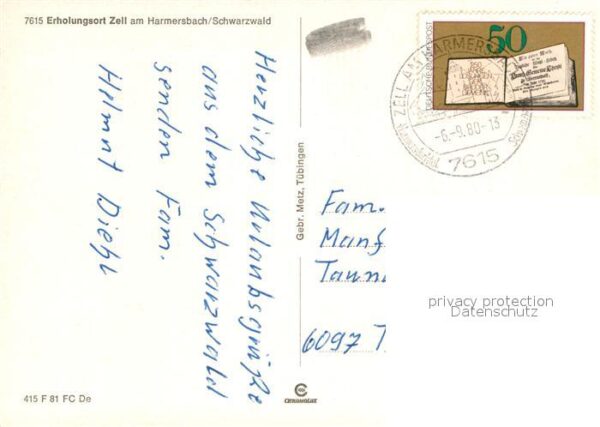 7615 Erholungsort Zell am Harmersbach/Schwarzwald
Herzliche Urlaubsgrüße
aus dem Schwarzwald
senden Fam.
Helmut Diehl
Gebr. Metz, Tübingen
DEUTSCHE BUNDESPOST
50
250
LOSUNGEN
DER
BRÜDER-
GEMEINE
ZELL AM HARMERS
-6.-9.80-13
7615
Fam.
Manf
Taun
6097 T
privacy protection
Datenschutz
415 F 81 FC De